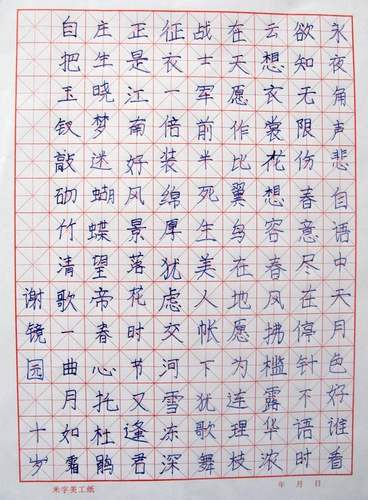 永夜角声悲自语中天月色好谁看
欲知无限伤春意尽在停针不语时
云想衣裳花想容春风拂槛露华浓
在天愿作比翼鸟在地愿为连理枝
战士军前半死生美人帐下犹歌舞
征衣一倍装绵厚犹虑交河雪冻深
正是江南好风景落花时节又逢君
庄生晓梦迷蝴蝶望帝春心托杜鹃
自把玉钗敲砌竹清歌一曲月如霜
谢镜园 十岁
米字美工纸 年 月 日